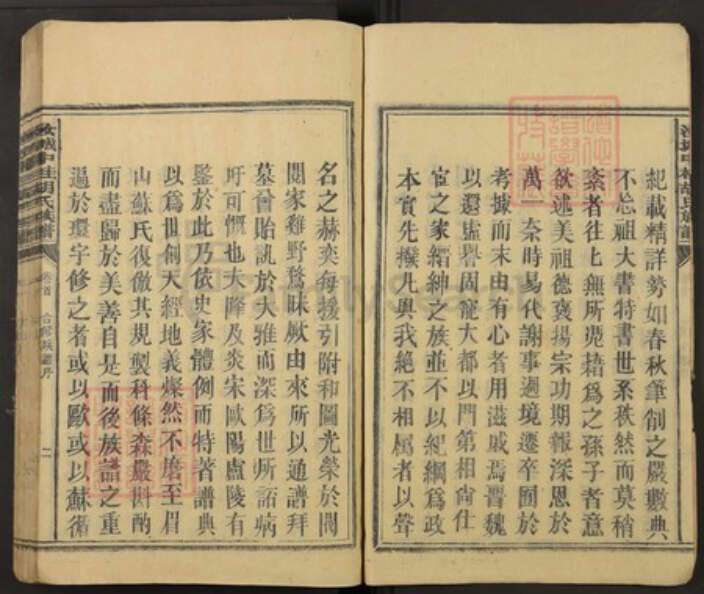 紀載精詳勢如春秋筆削之嚴數典
不忘祖大書特書世系秩然而莫稍
紊者往上無所凴藉爲之孫子者意
欲述美祖德褒揚宗功期報深恩於
萬一奈時易代謝事過境遷卒囿於
考據而末由有心者用滋戚焉晉魏
以還盧崔固寵大都以門第相尙仕
宦之家縉紳之族並不以紀綱爲政
本實先撥凡與我絶不相屬者以聲
名之赫奕每援引附和圖光榮於閥
閱家雞野鶩昧厥由來所以通譜拜
墓會貽譏於大雅而深爲世所詬病
吁可慨也大降及炎宋歐陽盧陵有
鑒於此乃依史家體例而特著譜典
以爲世創天經地義燦然不磨至眉
山蘇氏復倣其規製科條森嚴斟酌
而盡歸於美善自是而後族譜之重
遍於寰宇修之者或以歐或以蘇循
汝城中村胡氏族譜
卷首
二